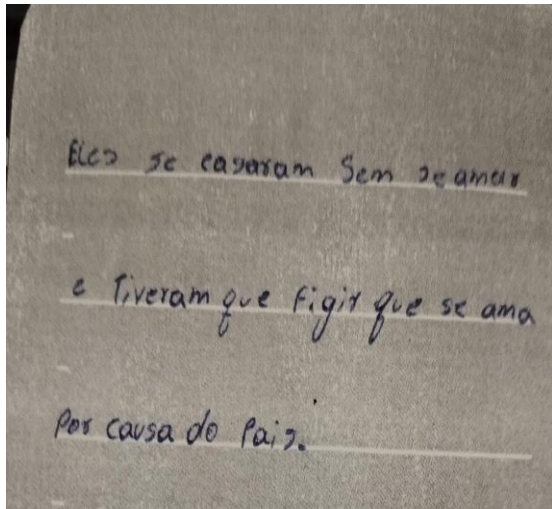 Eles se casaram Sem se amar
e Tiveram que figir que se ama
Por causa do Pais.